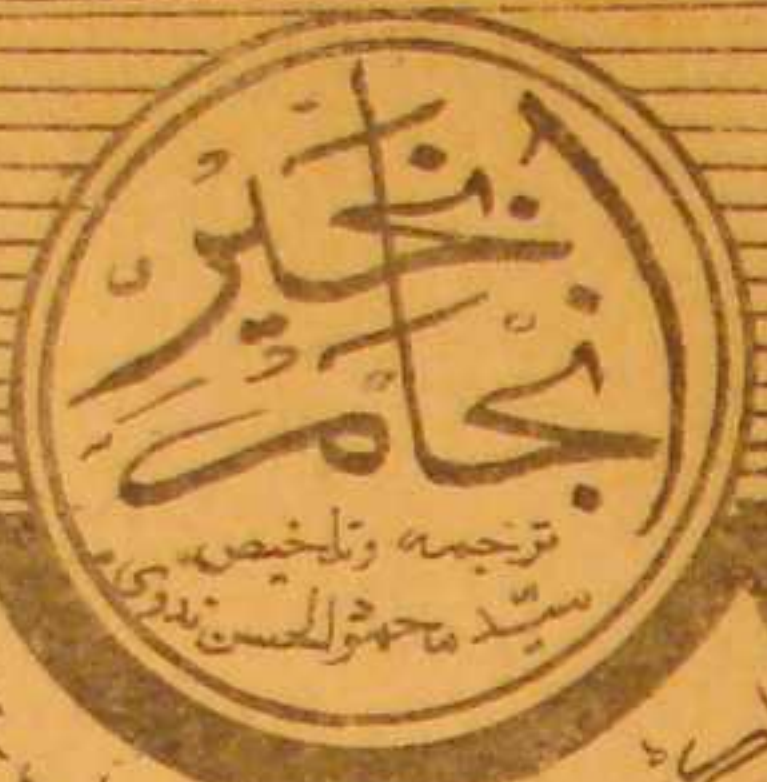 انجام بخیر
ترجمہ و تلخیص
سیّد محمود الحسن ندوی